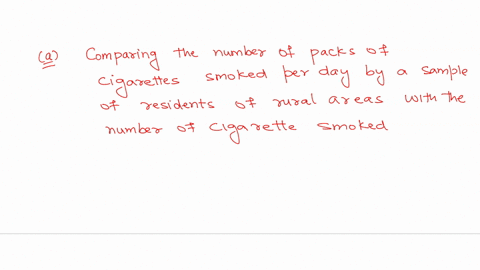 (a) Comparing the number of packs of
cigarettes smoked per day by a sample
of residents of rural areas with the
number of cigarette smoked